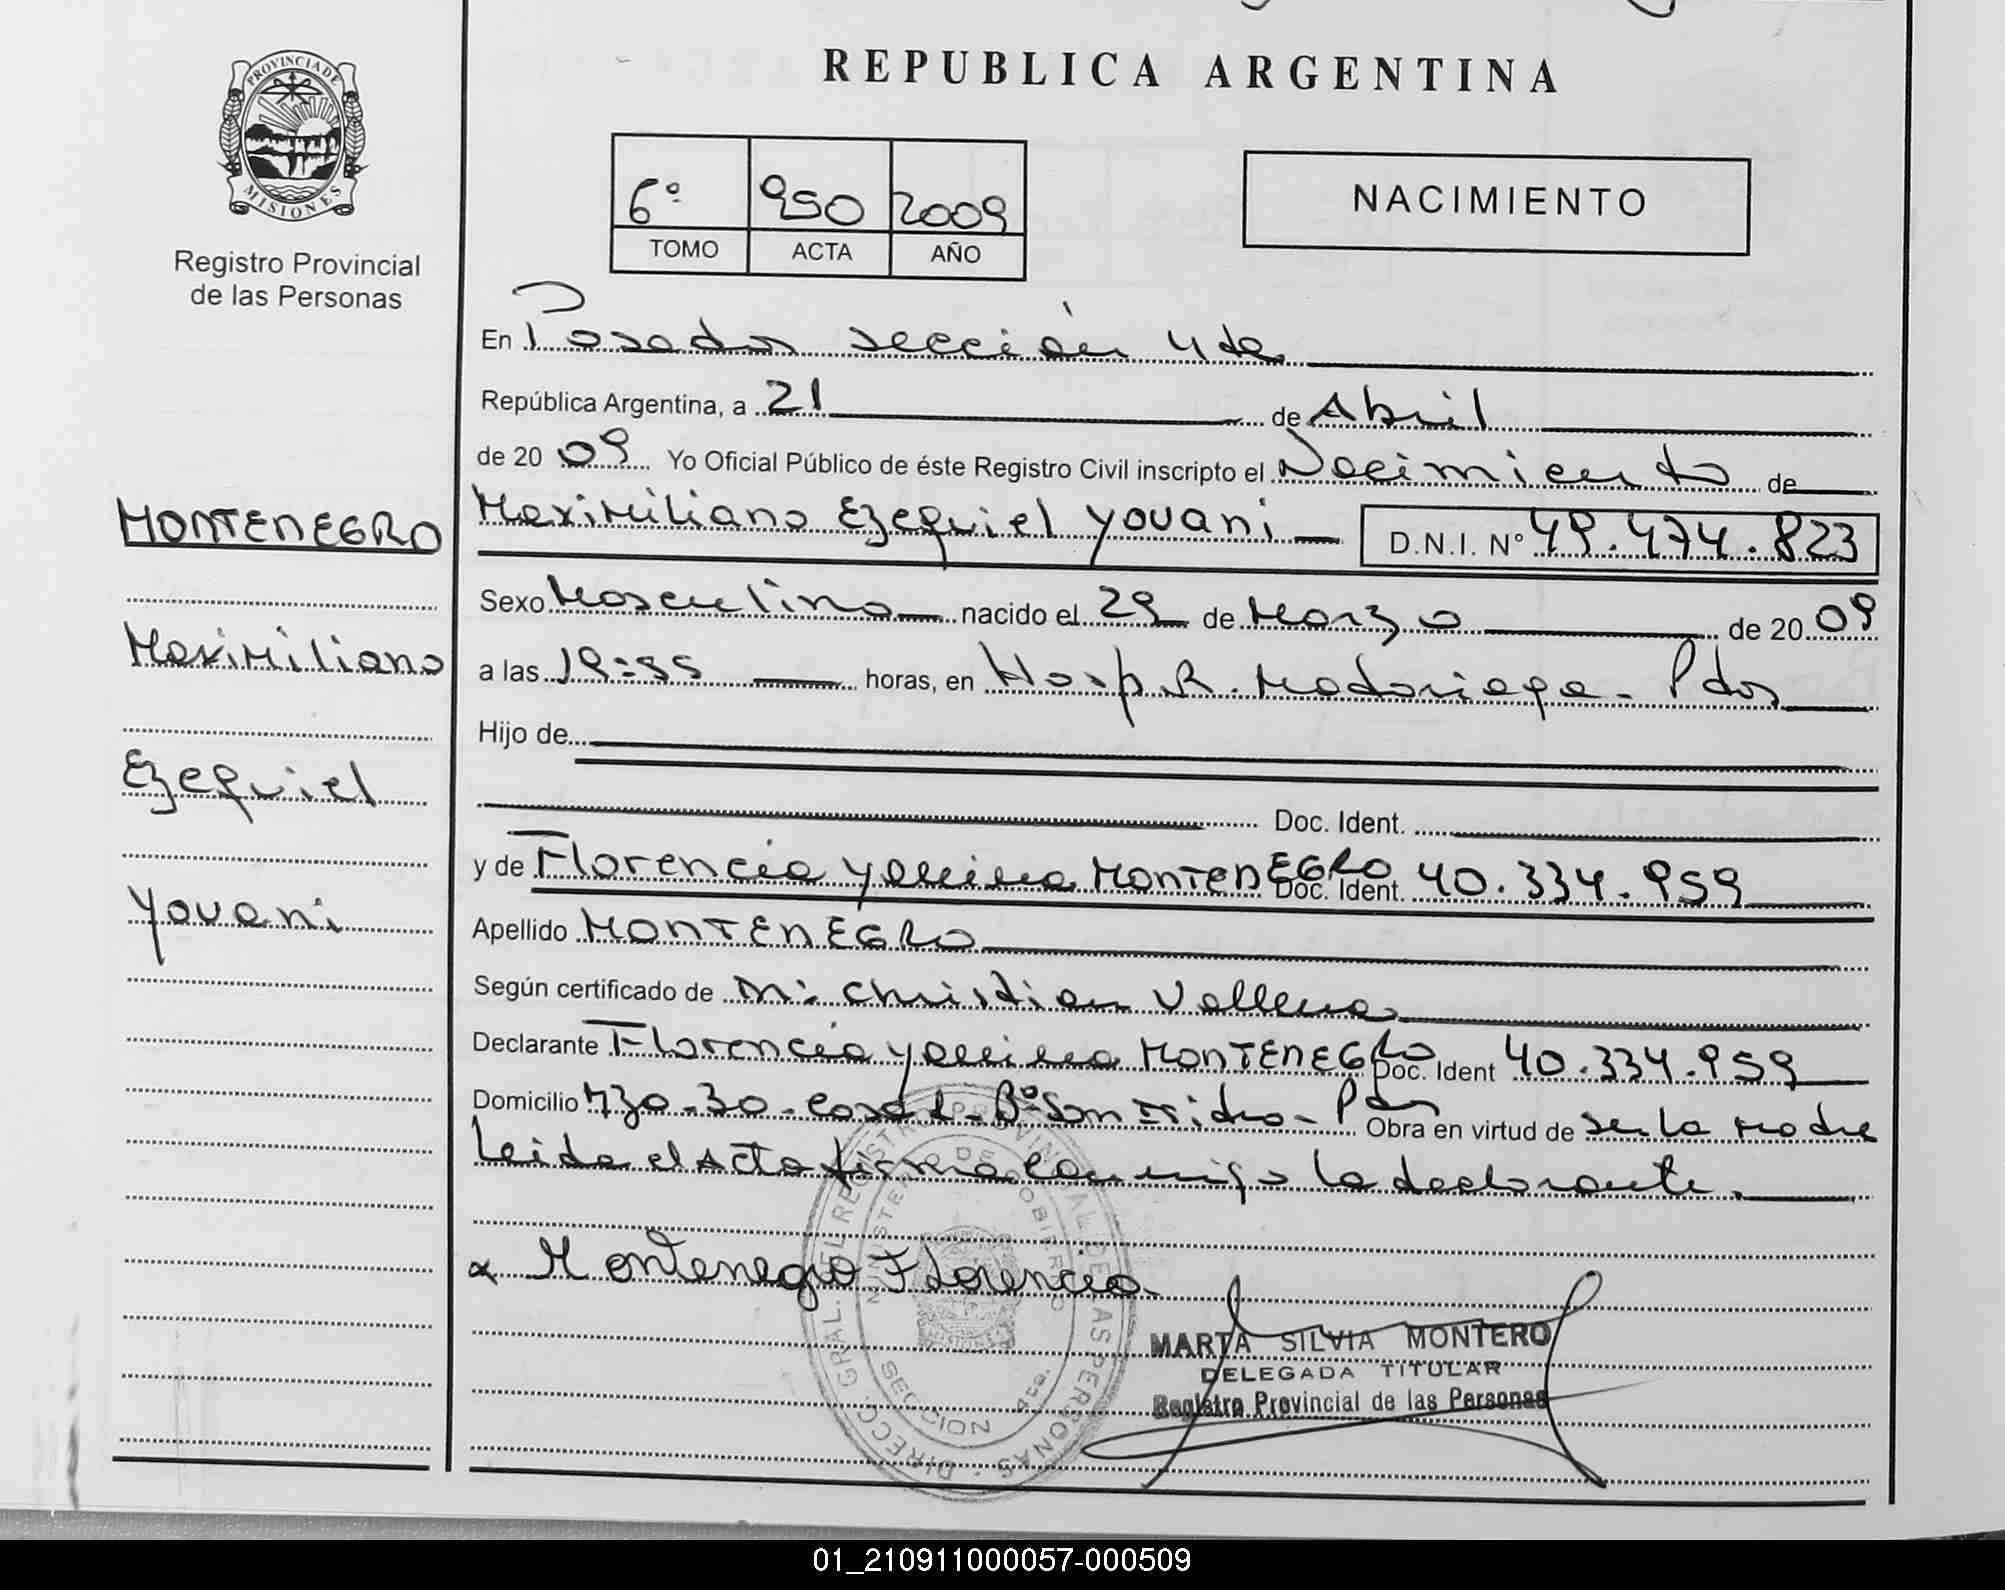 REPUBLICA ARGENTINA
PROVINCIA DE
MISIONES
Registro Provincial
de las Personas
6º 950 2009
TOMO ACTA AÑO
NACIMIENTO
En Posadas sección 4ta
República Argentina, a 21 de Abril
de 2009 Yo Oficial Público de éste Registro Civil inscripto el Nacimiento de
MONTENEGRO
Maximiliano
Ezequiel
Yovani
Maximiliano Ezequiel Yovani D.N.I. Nº 49.474.823
Sexo Masculino nacido el 29 de Marzo de 2009
a las 19:55 horas, en Hosp R. Madariaga - Pdas
Hijo de
Doc. Ident.
y de Florencia Yamina MONTENEGRO Doc. Ident. 40.334.959
Apellido MONTENEGRO
Según certificado de Christian
Declarante Florencia Yamina MONTENEGRO Doc. Ident 40.334.959
Domicilio 730-30-casa 1-Bº San Isidro - Pdas Obra en virtud de ser la madre
Leida el Acta firma conmigo la declarante.
x Montenegro Florencia
DIRECC. GRAL. DEL REGISTRO PROVINCIAL DE LAS PERSONAS
MINISTERIO DE GOBIERNO
SECCION 4ta.
MARTA SILVIA MONTERO
DELEGADA TITULAR
Registro Provincial de las Personas
01_210911000057-000509